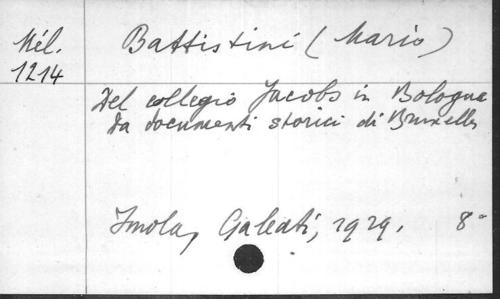 Mél. 1214
Battistini (Mario)
Del collegio Jacobs in Bologna
da documenti storici di Bruxelles
Imola, Galeati, 1929. 8°